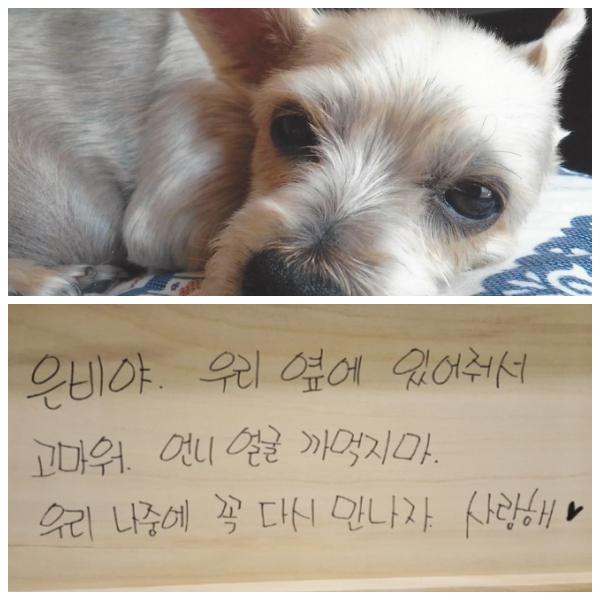 은비야. 우리 옆에 있어줘서
고마워. 언니 얼굴 까먹지마.
우리 나중에 꼭 다시 만나자. 사랑해 ♥